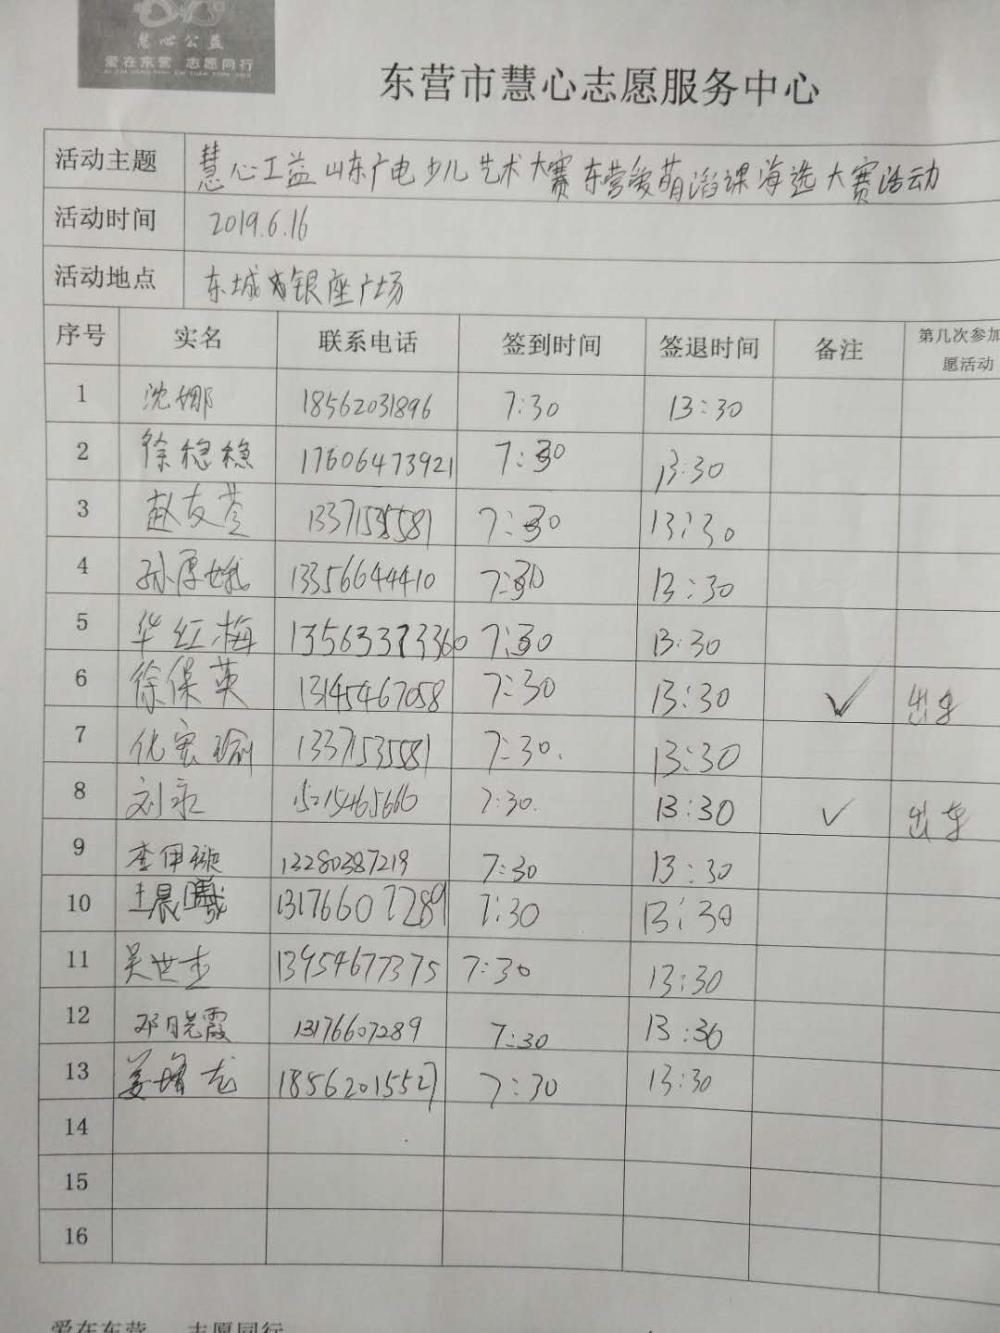 慧心公益
爱在东营 志愿同行
东营市慧心志愿服务中心
活动主题 慧心工益山东广电少儿艺术大赛东营爱萌滔课海选大赛活动
活动时间 2019.6.16
活动地点 东城银座广场
序号 实名 联系电话 签到时间 签退时间 备注 第几次参加
愿活动
1 沈娜 18562031896 7:30 13:30
2 徐稳稳 17606473921 7:30 13:30
3 赵友芩 13371535581 7:30 13:30
4 孙厚娥 13356644410 7:30 13:30
5 华红梅 13563373360 7:30 13:30
6 徐保英 13145467058 7:30 13:30 √ 出车
7 化宏瑜 13371535581 7:30. 13:30
8 刘永 15215465666 7:30. 13:30 √ 出车
9 李伊璇 13280387219 7:30 13:30
10 王晨曦 13176607289 7:30 13:30
11 吴世杰 13954677375 7:30 13:30
12 邓晓霞 13176607289 7:30 13:30
13 姜峰龙 18562015527 7:30 13:30
14
15
16
爱在东营 志愿同行